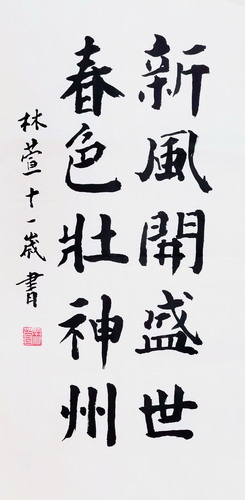 新風開盛世
春色壯神州
林萱十一歲書